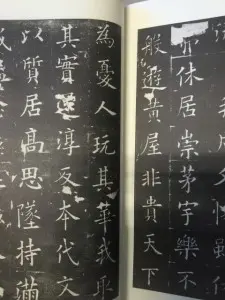 弗休居崇茅宇樂不
般遊黃屋非貴天下
為憂人玩其華我取
其實還淳反本代文
以質居高思墜持滿